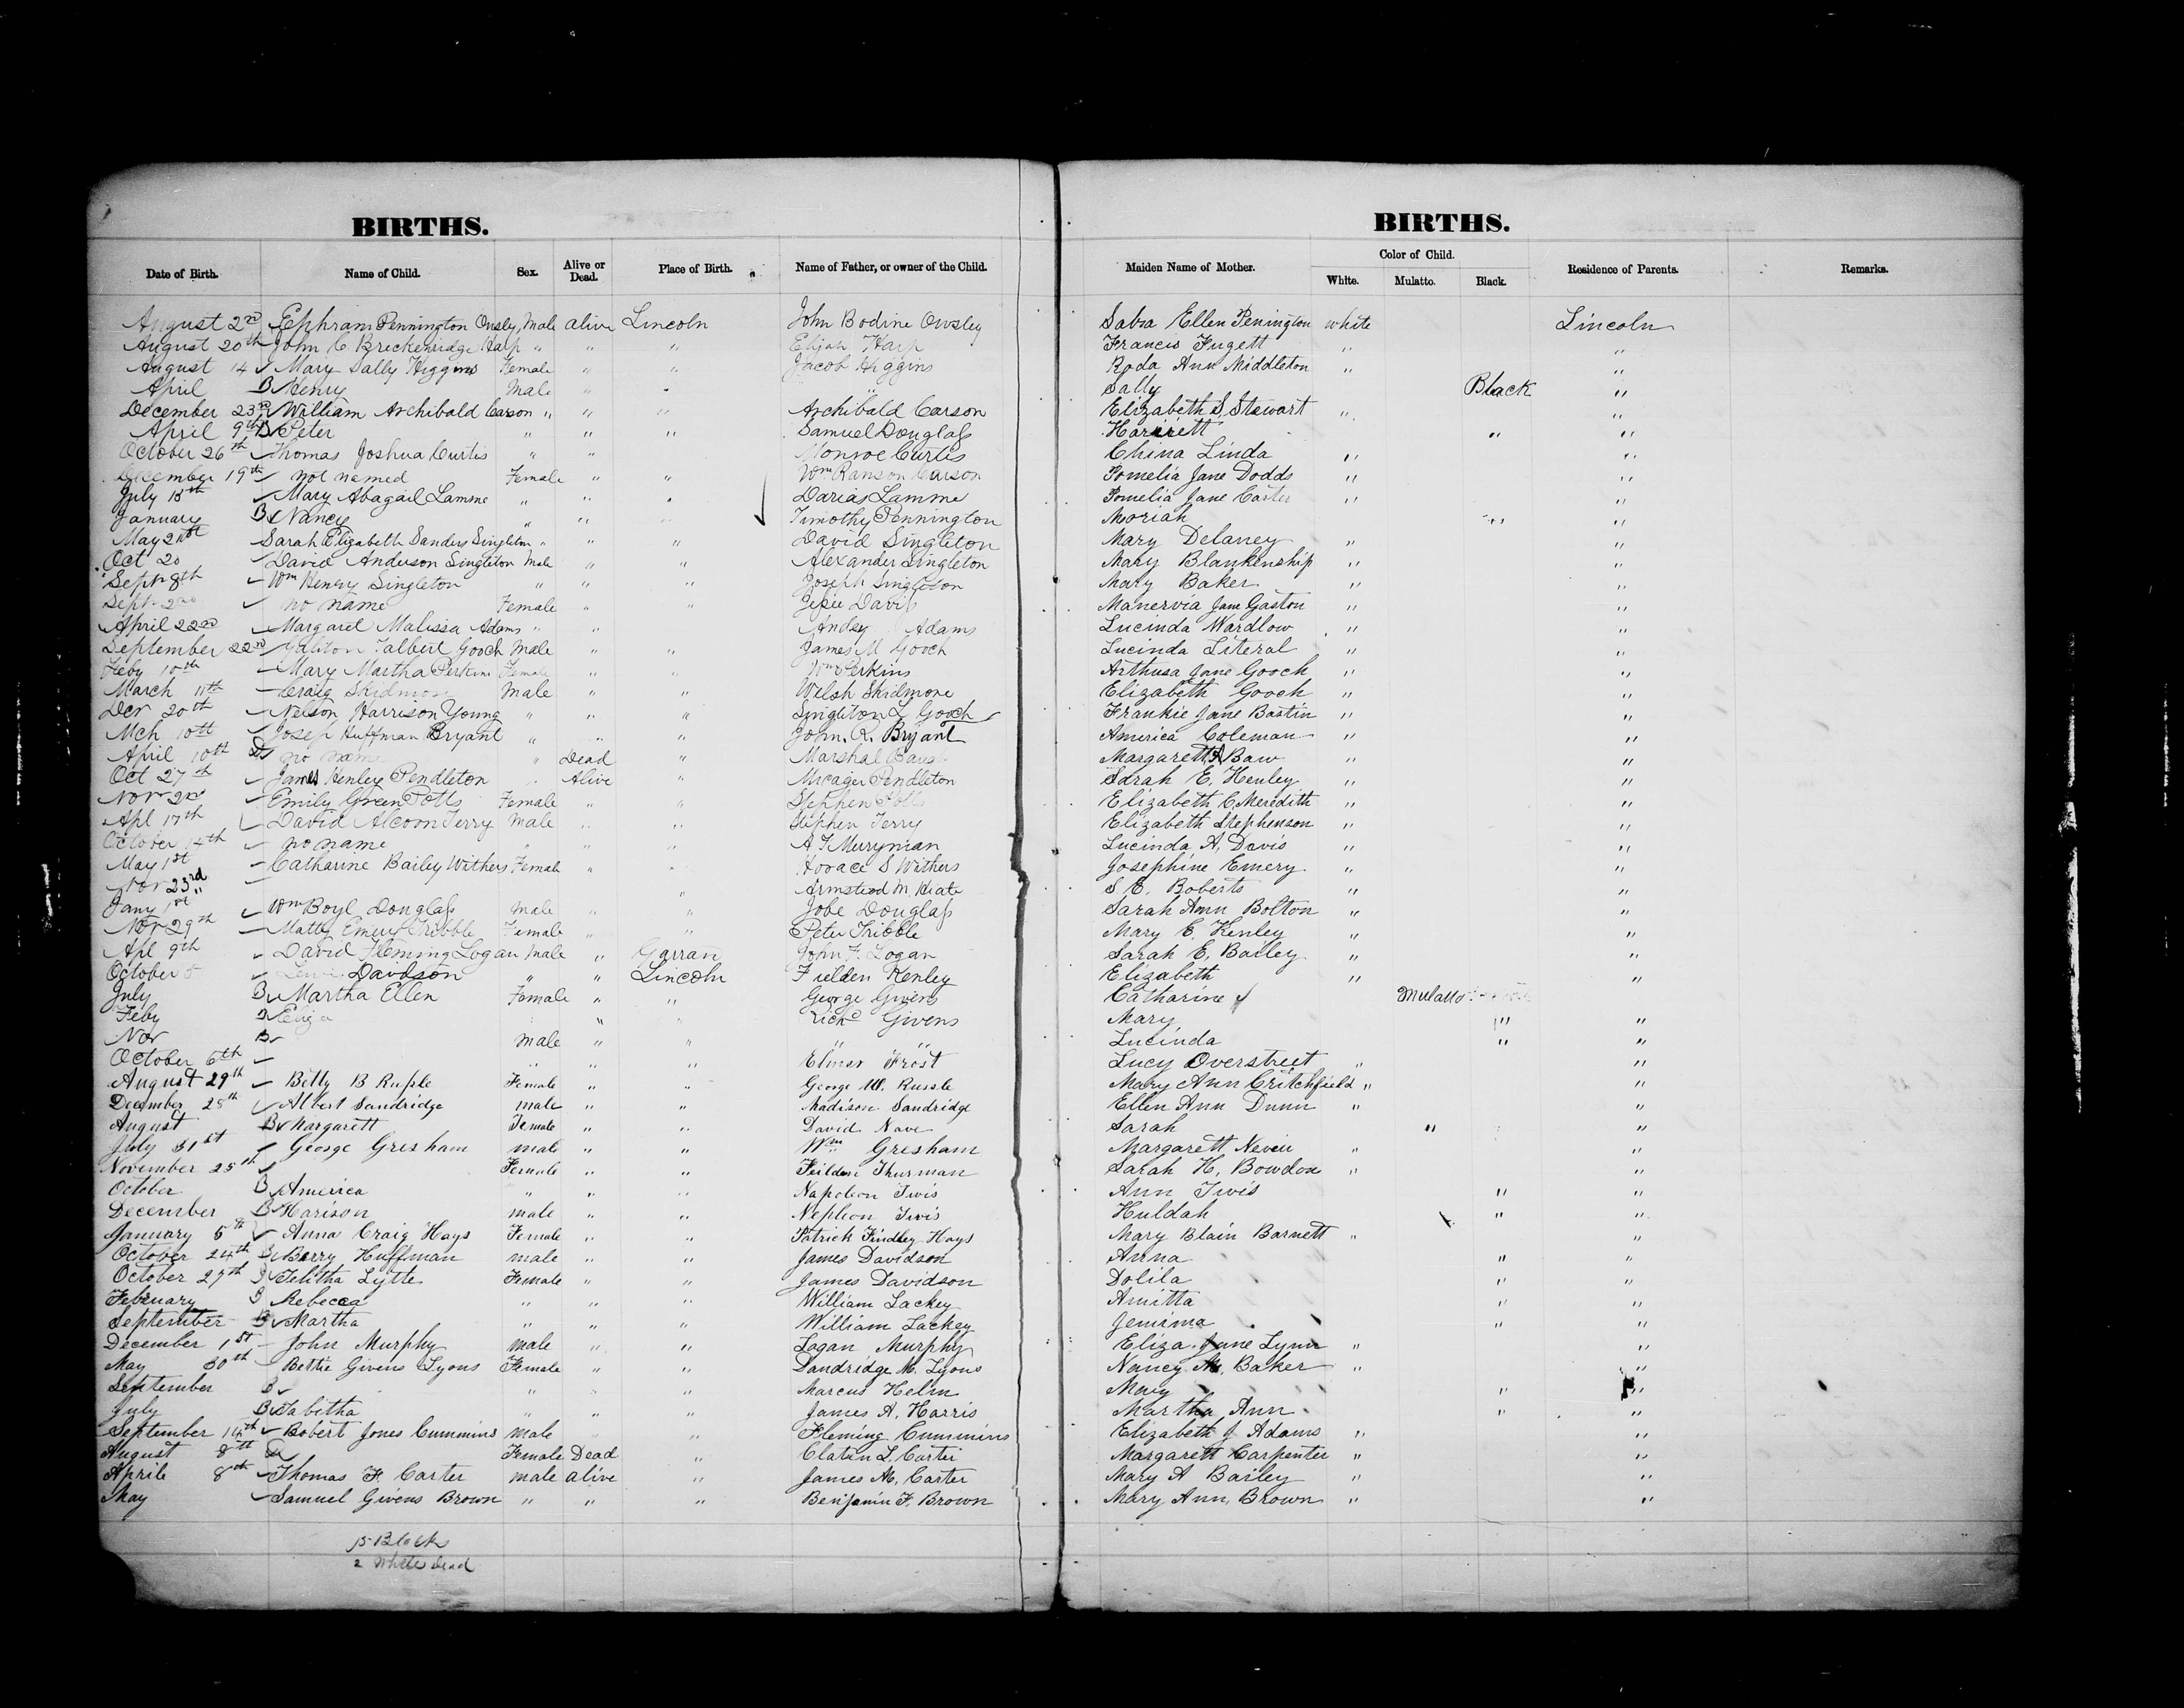 BIRTHS. BIRTHS.
Date of Birth. Name of Child. Sex. Alive or Dead. Place of Birth. Name of Father, or owner of the Child. Maiden Name of Mother. Color of Child. White. Mulatto. Black. Residence of Parents. Remarks.
August 2nd Ephram Pennington Owsley, Male alive Lincoln John Bodine Owsley Sabra Ellen Penington white Lincoln
August 20th John C Breckenridge Harp " " " Elijah Harp Francis Fugett " "
August 14 Mary Sally Higgins Female " " Jacob Higgins Roda Ann Middleton " "
April B Henry Male " " " Sally Black "
December 23rd William Archibald Carson " " " Archibald Carson Elizabeth S. Stewart " "
April 9th B Peter " " " Samuel Douglass Harirett " "
October 26th Thomas Joshua Curtis " " Monroe Curtis China Linda " "
December 19th not named Female " " Wm Ranson Carson Pomelia Jane Dodds " "
July 13th Mary Abagail Lamme " " " Darias Lamme Pomelia Jane Carter " "
January B Nancy " " Timothy Pennington Moriah " "
May Sarah Elizabeth Sanders Singleton " " " David Singleton Mary Delaney " "
Oct 20 David Anderson Singleton Male " " Alexander Singleton Mary Blankenship " "
Sept 8th Wm Henry Singleton " " " Joseph Singleton Mary Baker " "
Sept 2nd no name Female " " Jessee Davis Manervia Jane Gaston " "
April 22nd Margaret Malissa Adams " " Adams Lucinda Wardlow " "
September 22nd Talbert Gooch Male " " James M Gooch Lucinda Literal " "
Feby 10th Mary Martha Perkins Female " Wm Perkins Arthusa Jane Gooch " "
March 11th Craig Skidmore Male " " Welsh Skidmore Elizabeth Gooch " "
Dec 20th Nelson Harrison Young " " " Singleton L Gooch Frankie Jane Bastin " "
Mch 10th Josep Huffman Bryant " " " John. R. Bryant America Coleman " "
April 10th no name " Dead " Marshal Margarett A Baw " "
Oct 27th James Henley Pendleton " Alive " Micager Pendleton Sarah E. Henley " "
Nov 2nd Emily Green Potts Female " " Stephen Potts Elizabeth C. Meredith " "
Apl 17th David Alcorn Terry Male " " Stephen Terry Elizabeth Stephenson " "
October 14th no name " " " A F Muryman Lucinda A. Davis " "
May 1st Catharine Bailey Withers Female " " Horace S Withers Josephine Emery " "
Nov 23rd " Armstead M. Hiate S E. Roberts " "
Jany 1st Wm Boyl Douglass Male " " Jobe Douglass Sarah Ann Bolton " "
Nov 29th Matty Emery Tribble Female " " Peter Tribble Mary E. Kenley " "
Apl 9th David Fleming Logan Male " Garrard John F. Logan Sarah E. Bailey " "
October 5 Davidson " " Lincoln Fielden Kenley Elizabeth " "
July B Martha Ellen Female " " George Givens Catharine Mulatto
Feby B Eliza " " Richd Givens Mary " "
Nov B Male " " " " Lucinda " "
October 6th " " " Elmer Frost Lucy Overstreet " "
August 29th Betty B Russle Female " " George W. Russle Mary Ann Critchfield " "
December 28th Albert Sandridge male " " Madison Sandridge Ellen Ann Dunn " "
August B Margarett Female " " David Nave Sarah " "
July 31st George Gresham male " " Wm Gresham Margarett Neviu " "
November 25th Female " " Feilden Thurman Sarah H. Bowdon " "
October B America " " " Napoleon Tivis Ann Tivis " "
December B Harison male " " Nepleon Tivis Huldah " "
January 5th Anna Craig Hays Female " " Patrick Findley Hays Mary Blain Barnett " "
October 24th B Barry Huffman male " " James Davidson Anna " "
October 27th B Telitha Lytte Female " " James Davidson Dolila " "
February B Rebecca " " " William Lackey Amitta " "
September B Martha " " " William Lackey Jemima " "
December 1st John Murphy male " " Logan Murphy Eliza Jane Lynn " "
May 30th Bettie Givens Lyons Female " " Dandridge M. Lyons Nancy M. Baker " "
September B " " " Marcus Helm Mary " "
July B Tabitha " " " James A. Harris Martha Ann " "
September 14th Robert Jones Cummins male " " Fleming Cummins Elizabeth J Adams " "
August 8th Female Dead " Claten L. Carter Margarett Carpenter " "
Aprile 8th Thomas F. Carter male alive " James M. Carter Mary A Bailey " "
May Samuel Givens Brown " " " Benjamin F. Brown Mary Ann, Brown " "
15 Black
2 White dead